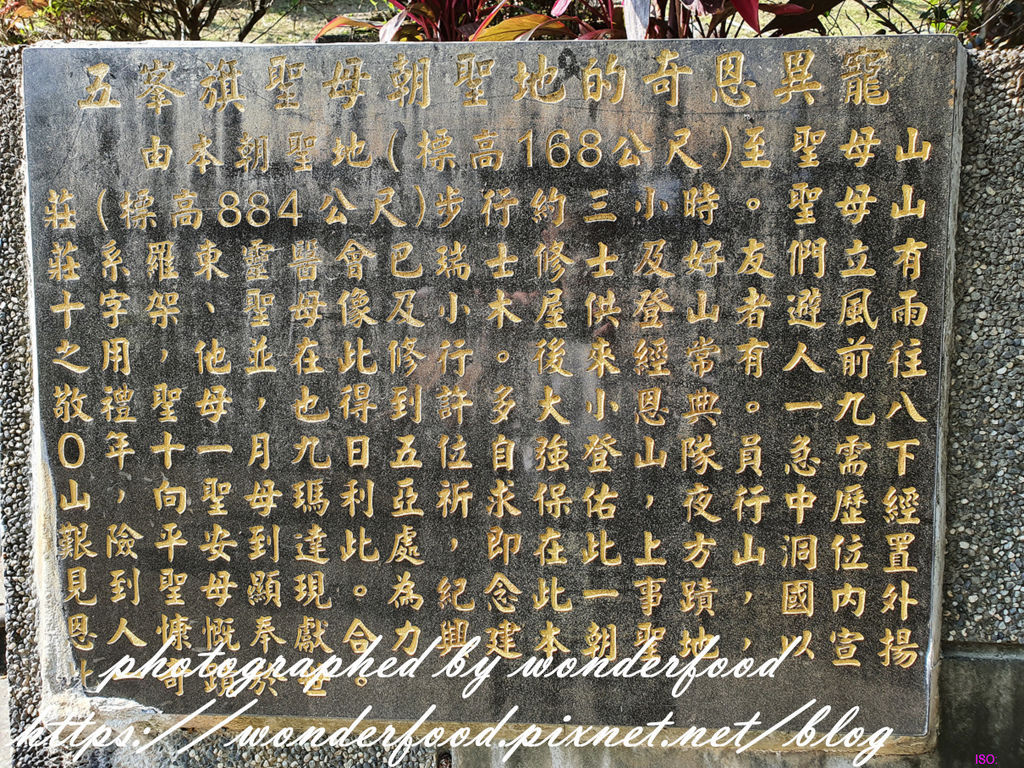 五峯旗聖母朝聖地的奇恩異寵
由本朝聖地(標高168公尺)至聖母山
莊(標高884公尺)步行約三小時。聖母山
莊系羅東靈醫會巴瑞士修士及好友們立有
十字架、聖母像及小木屋供登山者避風雨
之用,他並在此修行。後來經常有人前往
敬禮聖母,也得到許多大小恩典。一九八
0年十一月九日五位自強登山隊員急需下
山,向聖母瑪利亞祈求保佑,夜行中歷經
艱險平安到達此處,即在此上方山洞位置
見到聖母顯現。為紀念此一事蹟,國內外
恩人慷慨奉獻合力興建本朝聖地,以宣揚
此一奇蹟於世。
photographed by wonderfood
https://wonderfood.pixnet.net/blog
ISO: